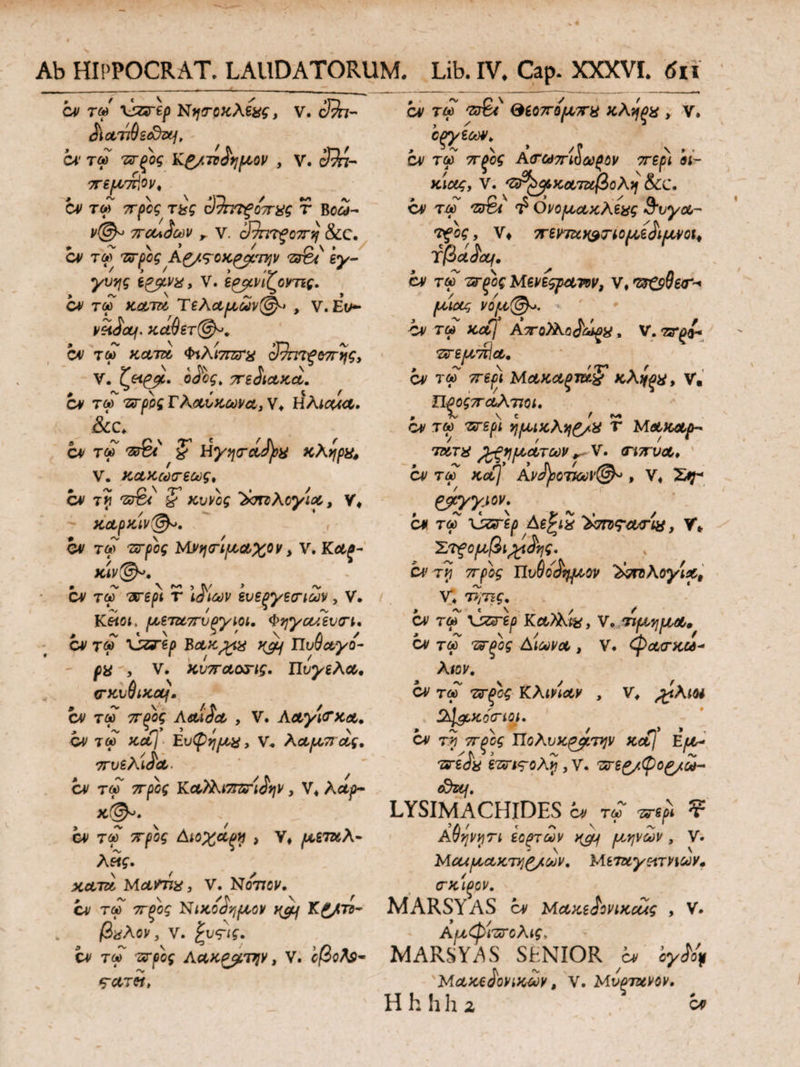 Ab HIPPOCRAT. LAUDATORUM. Lib. IV. Cap. XXXVI. 611
ἐν τῷ ὑπὲρ Νησοκλέυς, v. ἐπι-
διατίθεσθαι.
ἐν τῷ πρὸς Κριτόδημον, v. ἐπι-
πεμπῖον.
ἐν τῷ πρὸς τὺς ἐπιτρόπυς τ Βοιώ-
νος παίδων, v. ἐπιτροπὴ &c.
ἐν τῷ πρὸς Ἀριστοκράτην περὶ ἐγ-
γύης ἐράνυ, v. ἐρανίζοντες.
ἐν τῷ κατὰ Τελαμῶνος, v. Ευ-
νεῖδαι. κάθετος.
ἐν τῷ κατὰ Φιλίππυ ἐπιτροπῆς,
v. ζειρά. ὁδὸς. πεδιακά.
ἐν τῷ πρὸς Γλαύκωνα, v. Ηλιαία.
&c.
ἐν τῷ περὶ τῦ Ηγησάνδρυ κλήρυ.
v. κακώσεως.
ἐν τῇ περὶ τῦ κυνὸς ἀπολογίᾳ, v.
καρκίνος.
ἐν τῷ πρὸς Μνησίμαχον, v. Καρ-
κίνος.
ἐν τῷ περὶ τ ἰδίων ἐυεργεσιῶν, v.
Κεῖοι. μεταπύργιοι. Φηγαιεῦσι.
ἐν τῷ ὑπὲρ Βακχίυ καὶ Πυθαγό-
ρυ, v. κύπασσις. Πύγελα.
σκυθικαί.
ἐν τῷ πρὸς Λαΐδα, v. Λαγίσκα.
ἐν τῷ κατ' Ευφήμυ, v. λαμπάς.
πυελίδα.
ἐν τῷ πρὸς Καλλιππίδην, v. λάρ-
κος.
ἐν τῷ πρὸς Διοχάρη, v. μεταλ-
λεῖς.
κατὰ Μαντίυ, v. Νότιον.
ἐν τῷ πρὸς Νικόδημον καὶ Κριτό-
βυλον, v. ξυστίς.
ἐν τῷ πρὸς Λακράτην, v. ὀβολο-
στατεῖ.
ἐν τῷ περὶ Θεοπόμπυ κλήρυ, v.
ὀργεών.
ἐν τῷ πρὸς Ἀσωπόδωρον περὶ οἰ-
κίας, v. παρακαταβολὴ &c.
ἐν τῷ περὶ τ Ονομακλέυς θυγα-
τρὸς, v. πεντακοσιομέδιμνοι.
Υβάδαι.
ἐν τῷ πρὸς Μενέστρατον, v. προθεσ-
μίας νόμος.
ἐν τῷ κατ' Ἀπολλοδώρυ, v. προ-
πεμπῖα.
ἐν τῷ περὶ Μακαρτάτυ κλήρυ, v.
Πρόσπαλτιοι.
ἐν τῷ περὶ ἡμικληρίυ τ Μακαρ-
τάτυ χρημάτων, v. σιπύα.
ἐν τῷ κατ' Ἀνδροτίωνος, v. Ση-
ράγγιον.
ἐν τῷ ὑπὲρ Δεξίυ ἀποστασίυ, v.
Στρομβιχίδης.
ἐν τῇ πρὸς Πυθόδημον ἀπολογίᾳ,
v. τῆτες.
ἐν τῷ ὑπὲρ Καλλίυ, v. τιμημα.
ἐν τῷ πρὸς Δίωνα, v. φασκώ-
λιον.
ἐν τῷ πρὸς Κλινίαν, v. χίλιοι
διακόσιοι.
ἐν τῇ πρὸς Πολυκράτην κατ' Εμ-
πέδυ ἐπιστολῇ, v. περιφοριῶ-
σθαι.
LYSIMACHIDES ἐν τῷ περὶ τ
Ἀθήνησι ἑορτῶν καὶ μηνῶν, v.
Μαιμακτηριών. Μεταγειτνιών.
σκίρον.
MARSYAS ἐν Μακεδονικαῖς, v.
Ἀμφίπολις.
MARSYAS SENIOR ἐν ὀγδόῃ
Μακεδονικῶν, v. Μύρτανον.
Hhhh 2 ἐν